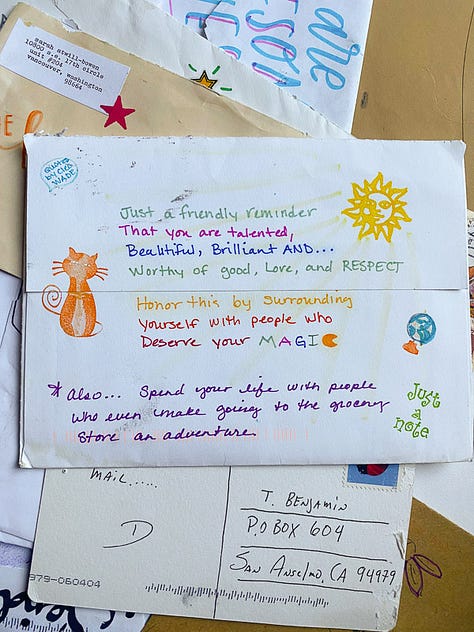 sarah atwill-bowen
10800 s.e. 17th circle
unit #204
vancouver, washington
98664
are
QUOTES
BY CLEO
WADE
Just a friendly reminder
That you are talented,
Beautiful, Brilliant AND...
Worthy of good, Love, and RESPECT
Honor this by surrounding
Yourself with people who
Deserve your MAGIC
*Also... Spend your life with people
who even make going to the grocery
store an adventure.
Just
a
note
MAIL.....
D
T. BENJAMIN
P.O BOX 604
SAN ANSELMO, CA 94979
979-060404